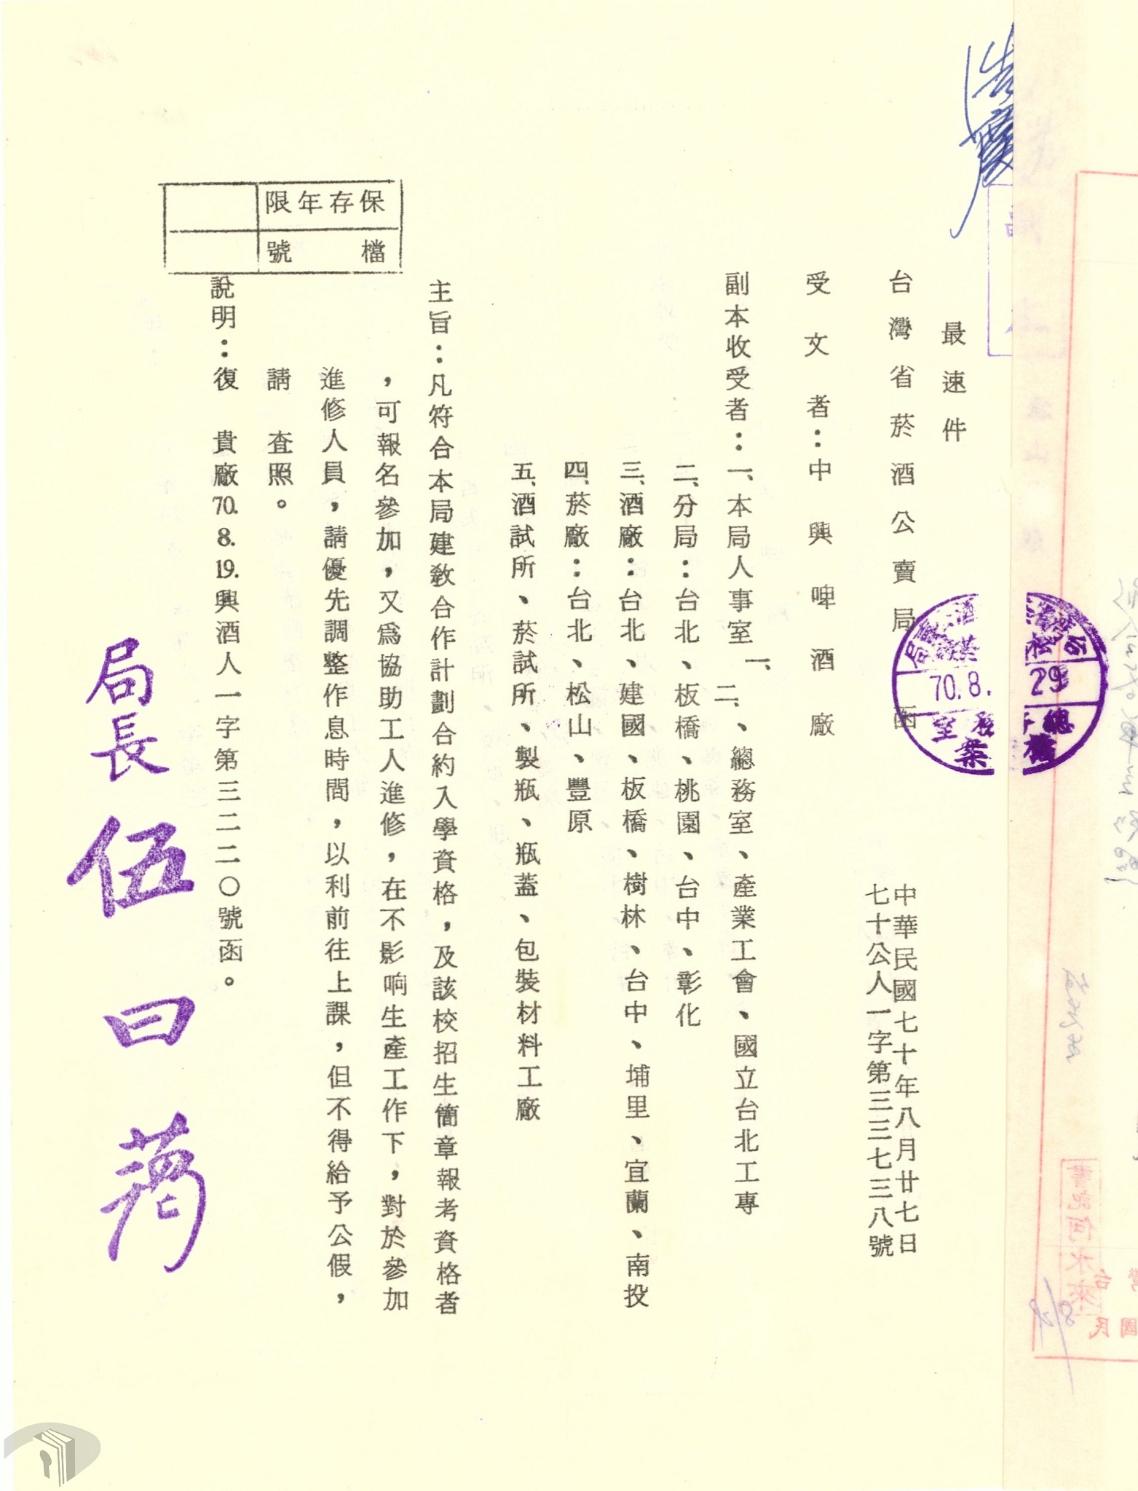 最速件
台灣省菸酒公賣局 函
中華民國七十年八月廿七日
七十公人一字第三三七三八號
受文者：中興啤酒廠
副本收受者：一、本局人事室一、二、總務室、產業工會、國立台北工專
二、分局：台北、板橋、桃園、台中、彰化
三、酒廠：台北、建國、板橋、樹林、台中、埔里、宜蘭、南投
四、菸廠：台北、松山、豐原
五、酒試所、菸試所、製瓶、瓶蓋、包裝材料工廠
主旨：凡符合本局建敎合作計劃合約入學資格，及該校招生簡章報考資格者
，可報名參加，又爲協助工人進修，在不影响生產工作下，對於參加
進修人員，請優先調整作息時間，以利前往上課，但不得給予公假，
請 查照。
說明：復 貴廠70.8.19.興酒人一字第三二二〇號函。
保存年限
檔號
局長 伍曰藹
70.8.29
書記何水來